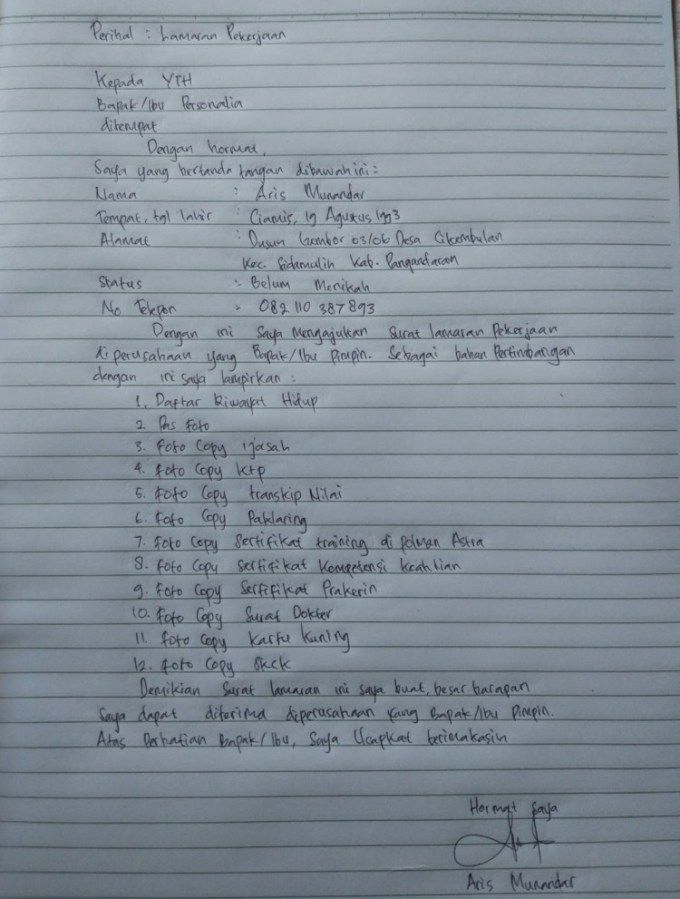 Perihal : Lamaran Pekerjaan
Kepada YTH
Bapak/Ibu Personalia
ditempat
Dengan hormat,
Saya yang bertanda tangan dibawah ini :
Nama : Aris Munandar
Tempat, tgl lahir : Ciamis, 19 Agustus 1993
Alamat : Dusun Gembor 03/06 Desa Cikembulan
Kec. Sidamulih Kab. Pangandaran
Status : Belum Menikah
No Telepon : 082 110 387 893
Dengan ini saya Mengajukan Surat lamaran Pekerjaan
diperusahaan yang Bapak/Ibu Pimpin. Sebagai bahan Pertimbangan
dengan ini saya lampirkan :
1. Daftar Riwayat Hidup
2. Pas foto
3. foto Copy ijasah
4. foto Copy ktp
5. foto Copy transkip Nilai
6. foto Copy Paklaring
7. foto Copy Sertifikat training di polman Astra
8. foto Copy Sertifikat Kompetensi keahlian
9. foto Copy Sertifikat Prakerin
10. foto Copy Surat Dokter
11. foto Copy kartu kuning
12. foto Copy Skck
Demikian Surat lamaran ini saya buat, besar harapan
Saya dapat diterima diperusahaan yang Bapak/Ibu Pimpin.
Atas Perhatian Bapak/Ibu, Saya Ucapkat terimakasih
Hormat Saya
Aris Munandar